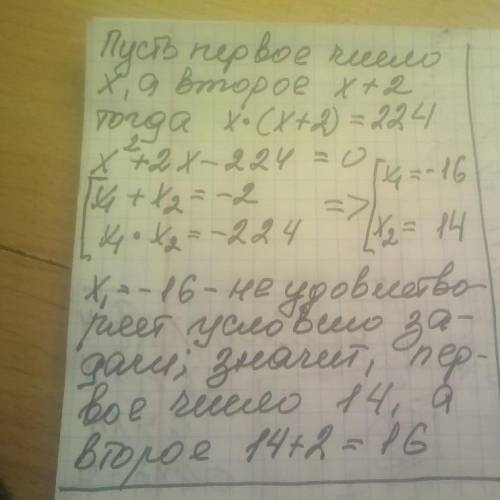 Пусть первое число
x, а второе x+2
тогда x·(x+2)=224
x²+2x-224=0
[x₁+x₂=-2 => [x₁=-16
x₁·x₂=-224 x₂=14
x₁=-16-не удовлетво-
ряет условию за-
дачи; значит, пер-
вое число 14, а
второе 14+2=16